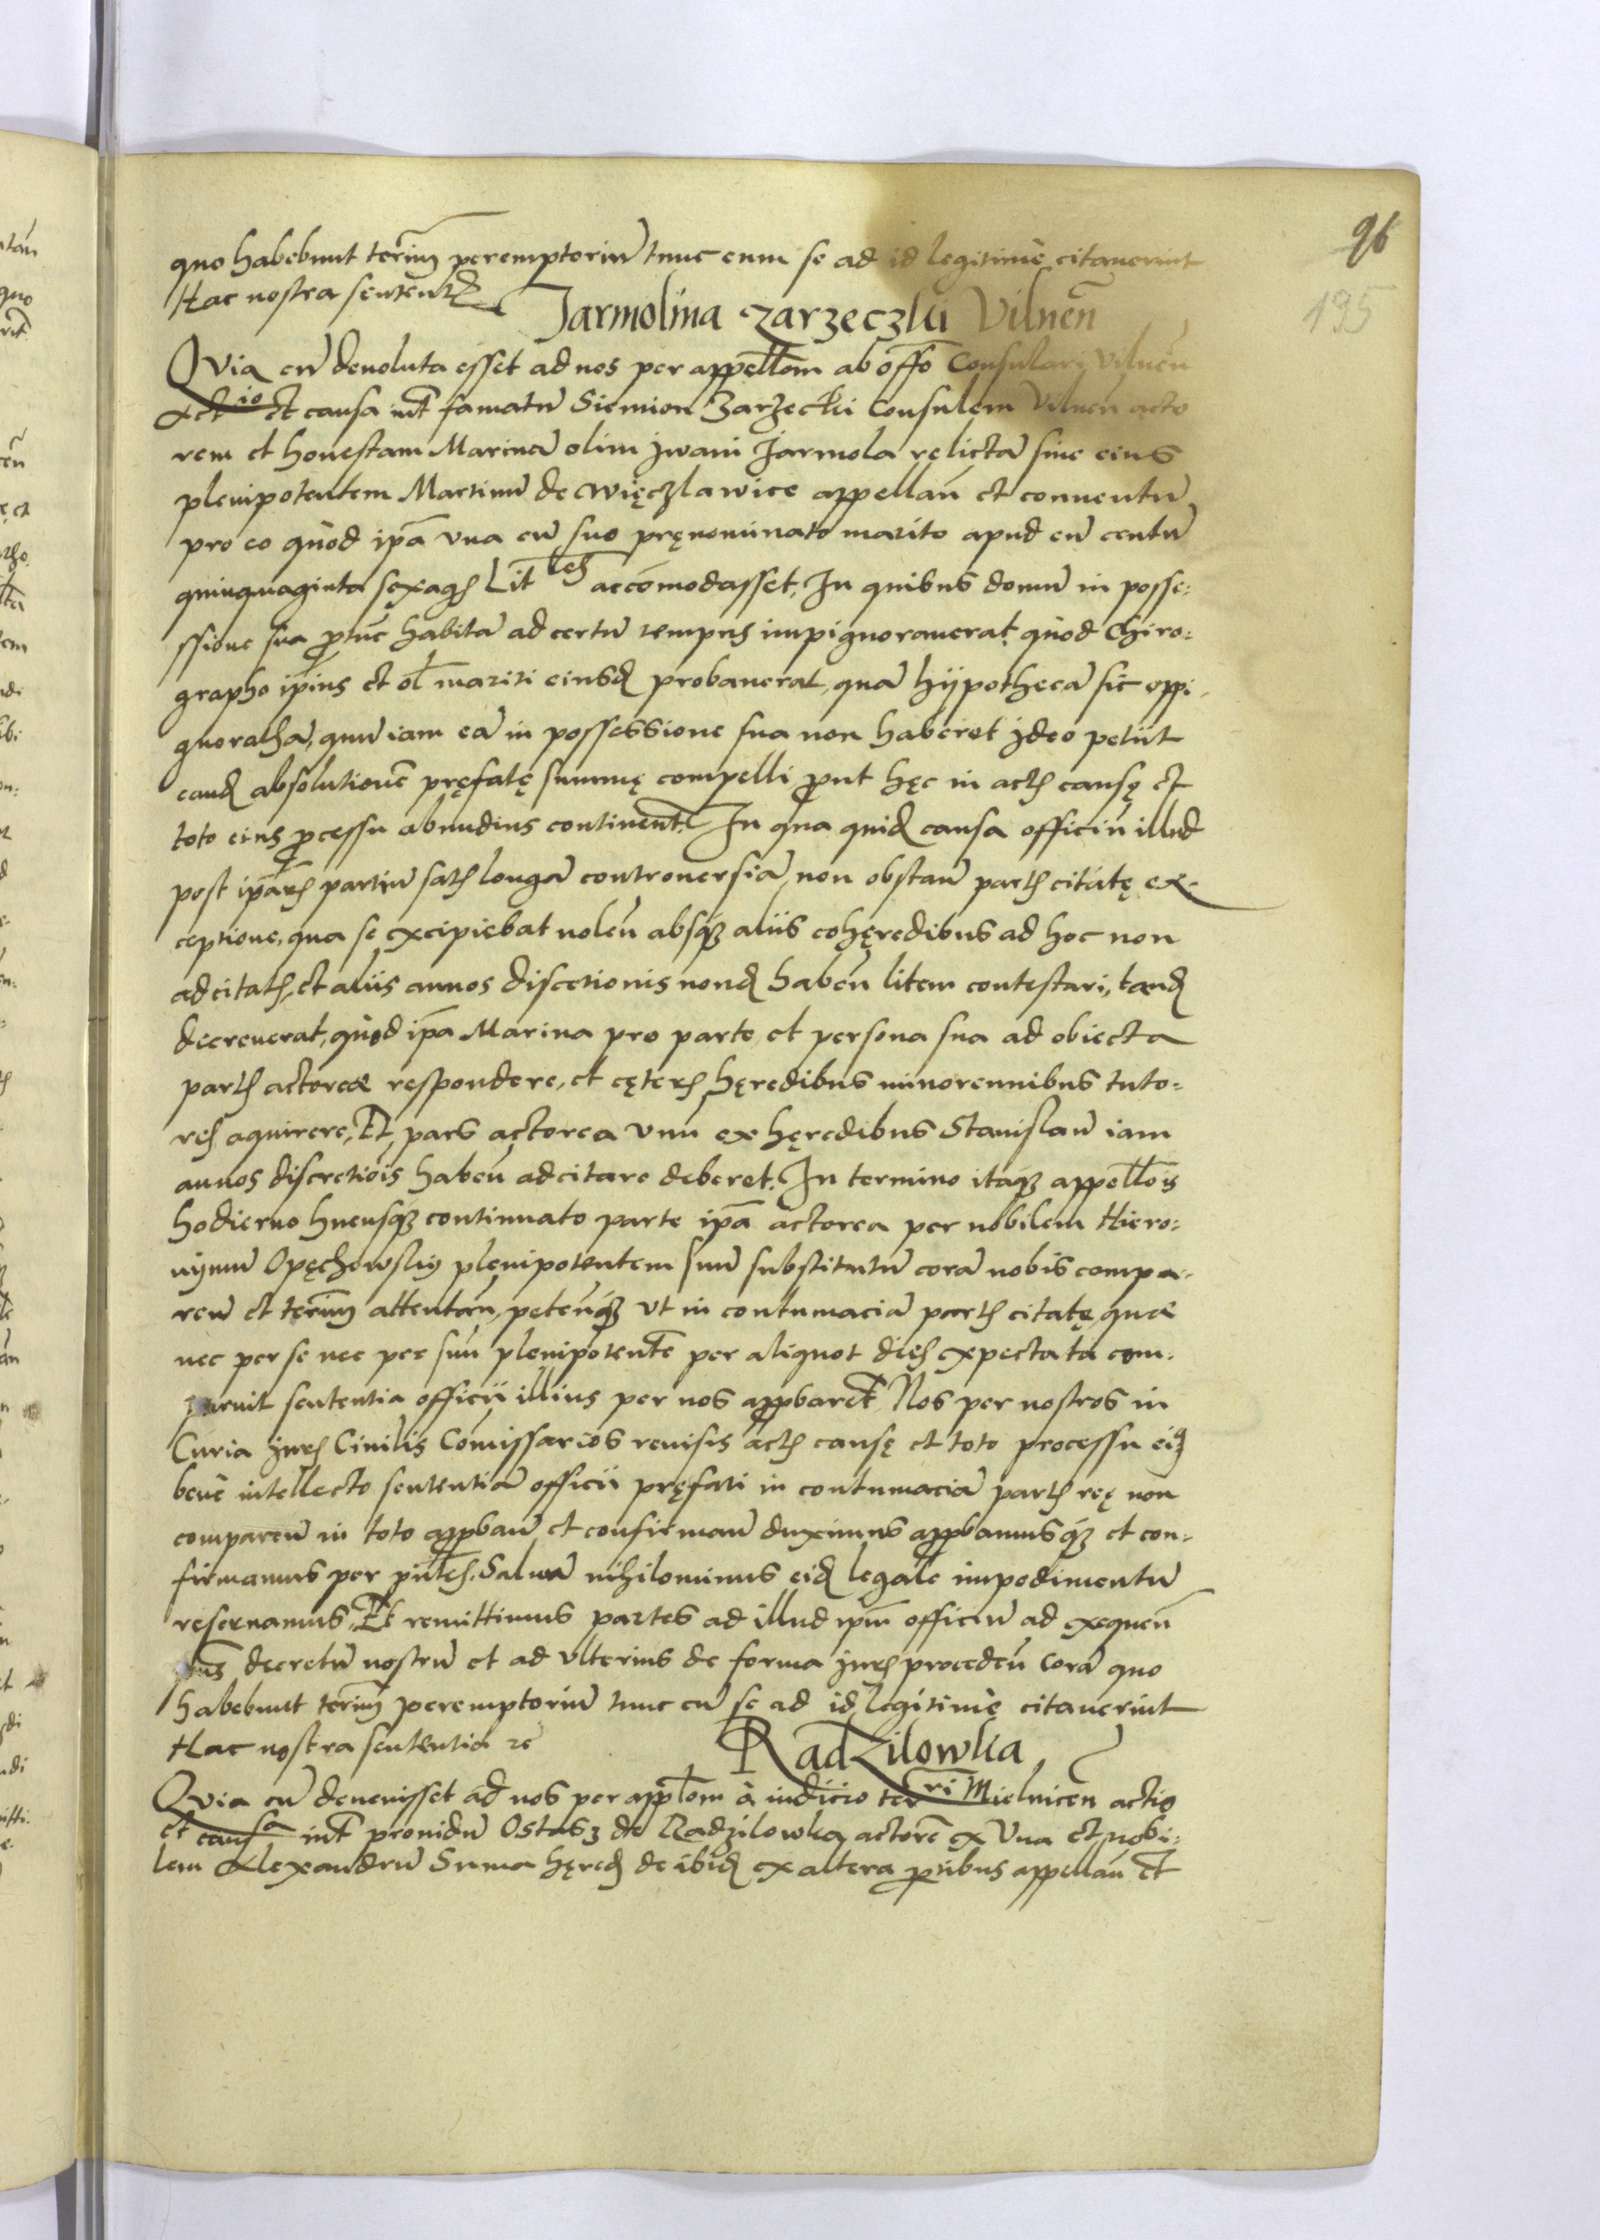 96
195
quo habebunt termī peremptoriū tunc cum se ad id legitime citaverint
Hac nostra sentent
Jarmolina Zarzeczki Vilneñ
Quia cū devoluta esset ad nos per appellōm ab offō Consulari Vilneñ
Actio et causa int famatū Siemion Zarzecki Consulem Vilneñ acto
rem et honestam Marinā olim Jwani Jarmola relictā sive eius
plenipotentem Martinū de Więczlawice appellañ et conventū
pro eo quòd ipā una cū suo pręnominato marito apud eū centū
quinquaginta sexages Lit les accōmodasset, In quibus domū in posse:
ssione sua protūc habitā ad certū tempus impignoraverat quòd Chiro:
grapho ipīus et ol mariti eiusd probaverat, quā hypothecā sic oppi
gnorathā, quū iam eā in possessione sua non haberet jdeo petiit
eand absolutionē pręfatę summę compelli prout hęc in actis causę et
toto eius processu abundius continent. In qua quid causa officiū illud
post ipārs partiū satis longā controversiā, non obstañ partis citatę ex:
ceptione, qua se excipiebat noleñ absq aliis cohęredibus ad hoc non
adcitatis, et aliis annos discetionis nond habeñ litem contestari, tand
decreverat, quòd ipā Marina pro parte et persona sua ad obiecta
partis actoreæ respondere, et cęteris hęredibus minorennibus tuto:
res aquirere, Et pars actorea unū ex hęredibus Stanislaū iam
annos discretiōis habeñ adcitare deberet. In termino itaq appellōis
hodierno hucusq continuato parte ipā actorea per nobilem Hiero:
nijmū Opęchowskij plenipotentem suū substitutū corā nobis compa:
reñ et termī attentañ, peteñq ut in contumaciā partis citatę, quæ
nec per se nec per suū plenipotentē per aliquot dies expectata com:
paruit sententia officii illius per nos approbaret Nos per nostros in
Curia juris Civilis Cōmissarios revisis actis causę et toto processu eiq
benè intellecto sententiā officii pręfati in contumaciā partis reę non
compareñ in toto approbañ et confirmañ duximus approbamusq et con:
firmamus per pntes. Salvū nihilominus eid legale impedimentū
reservamus, Et remittimus partes ad illud ipm officiū ad exequeñ
hūs decretū nostrū et ad ulterius de forma juris procedeñ corā quo
habebunt termī peremptoriū tunc cū se ad id legitimè citaverint
Hac nostra sententia rē
Radzilowka
Quia cū devenisset ad nos per applōm à iudicio terri Mielniceñ actio
et causa int providū Ostasz de Radzilowka actorē ex Una et nobi:
lem Alexandrū Suma hęred de ibid ex altera partibus appellañ Et